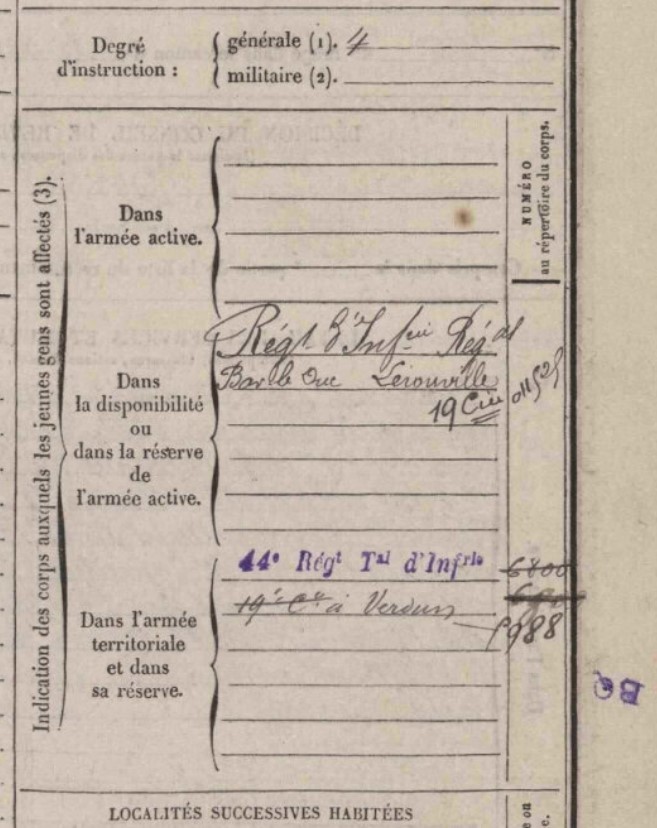 Degré d'instruction :
générale (1). 4
militaire (2).
NUMÉRO
au répertoire du corps.
Indication des corps auxquels les jeunes gens sont affectés (3).
Dans
l'armée active.
Régt d'Inf.rie Rég.al
Bar le Duc Lérouville
19 Cie
Dans
la disponibilité
ou
dans la réserve
de
l'armée active.
44e Régt Tal d'Infrie
6800
19e Cie à Verdun
5988
Dans l'armée
territoriale
et dans
sa réserve.
LOCALITÉS SUCCESSIVES HABITÉES